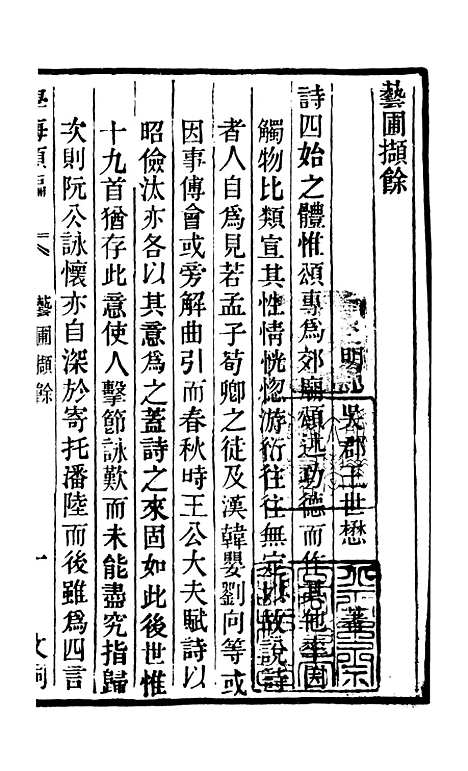 藝圃擷餘
明 吳郡王世懋 著
詩四始之體惟頌專為郊廟頌述功德而作其他率因
觸物比類宣其性情恍惚游衍往往無定以故說詩
者人自為見若孟子荀卿之徒及漢韓嬰劉向等或
因事傅會或旁解曲引而春秋時王公大夫賦詩以
昭儉汰亦各以其意為之蓋詩之來固如此後世惟
十九首猶存此意使人擊節詠歎而未能盡究指歸
次則阮公詠懷亦自深於寄托潘陸而後雖為四言
學海類編
藝圃擷餘
一